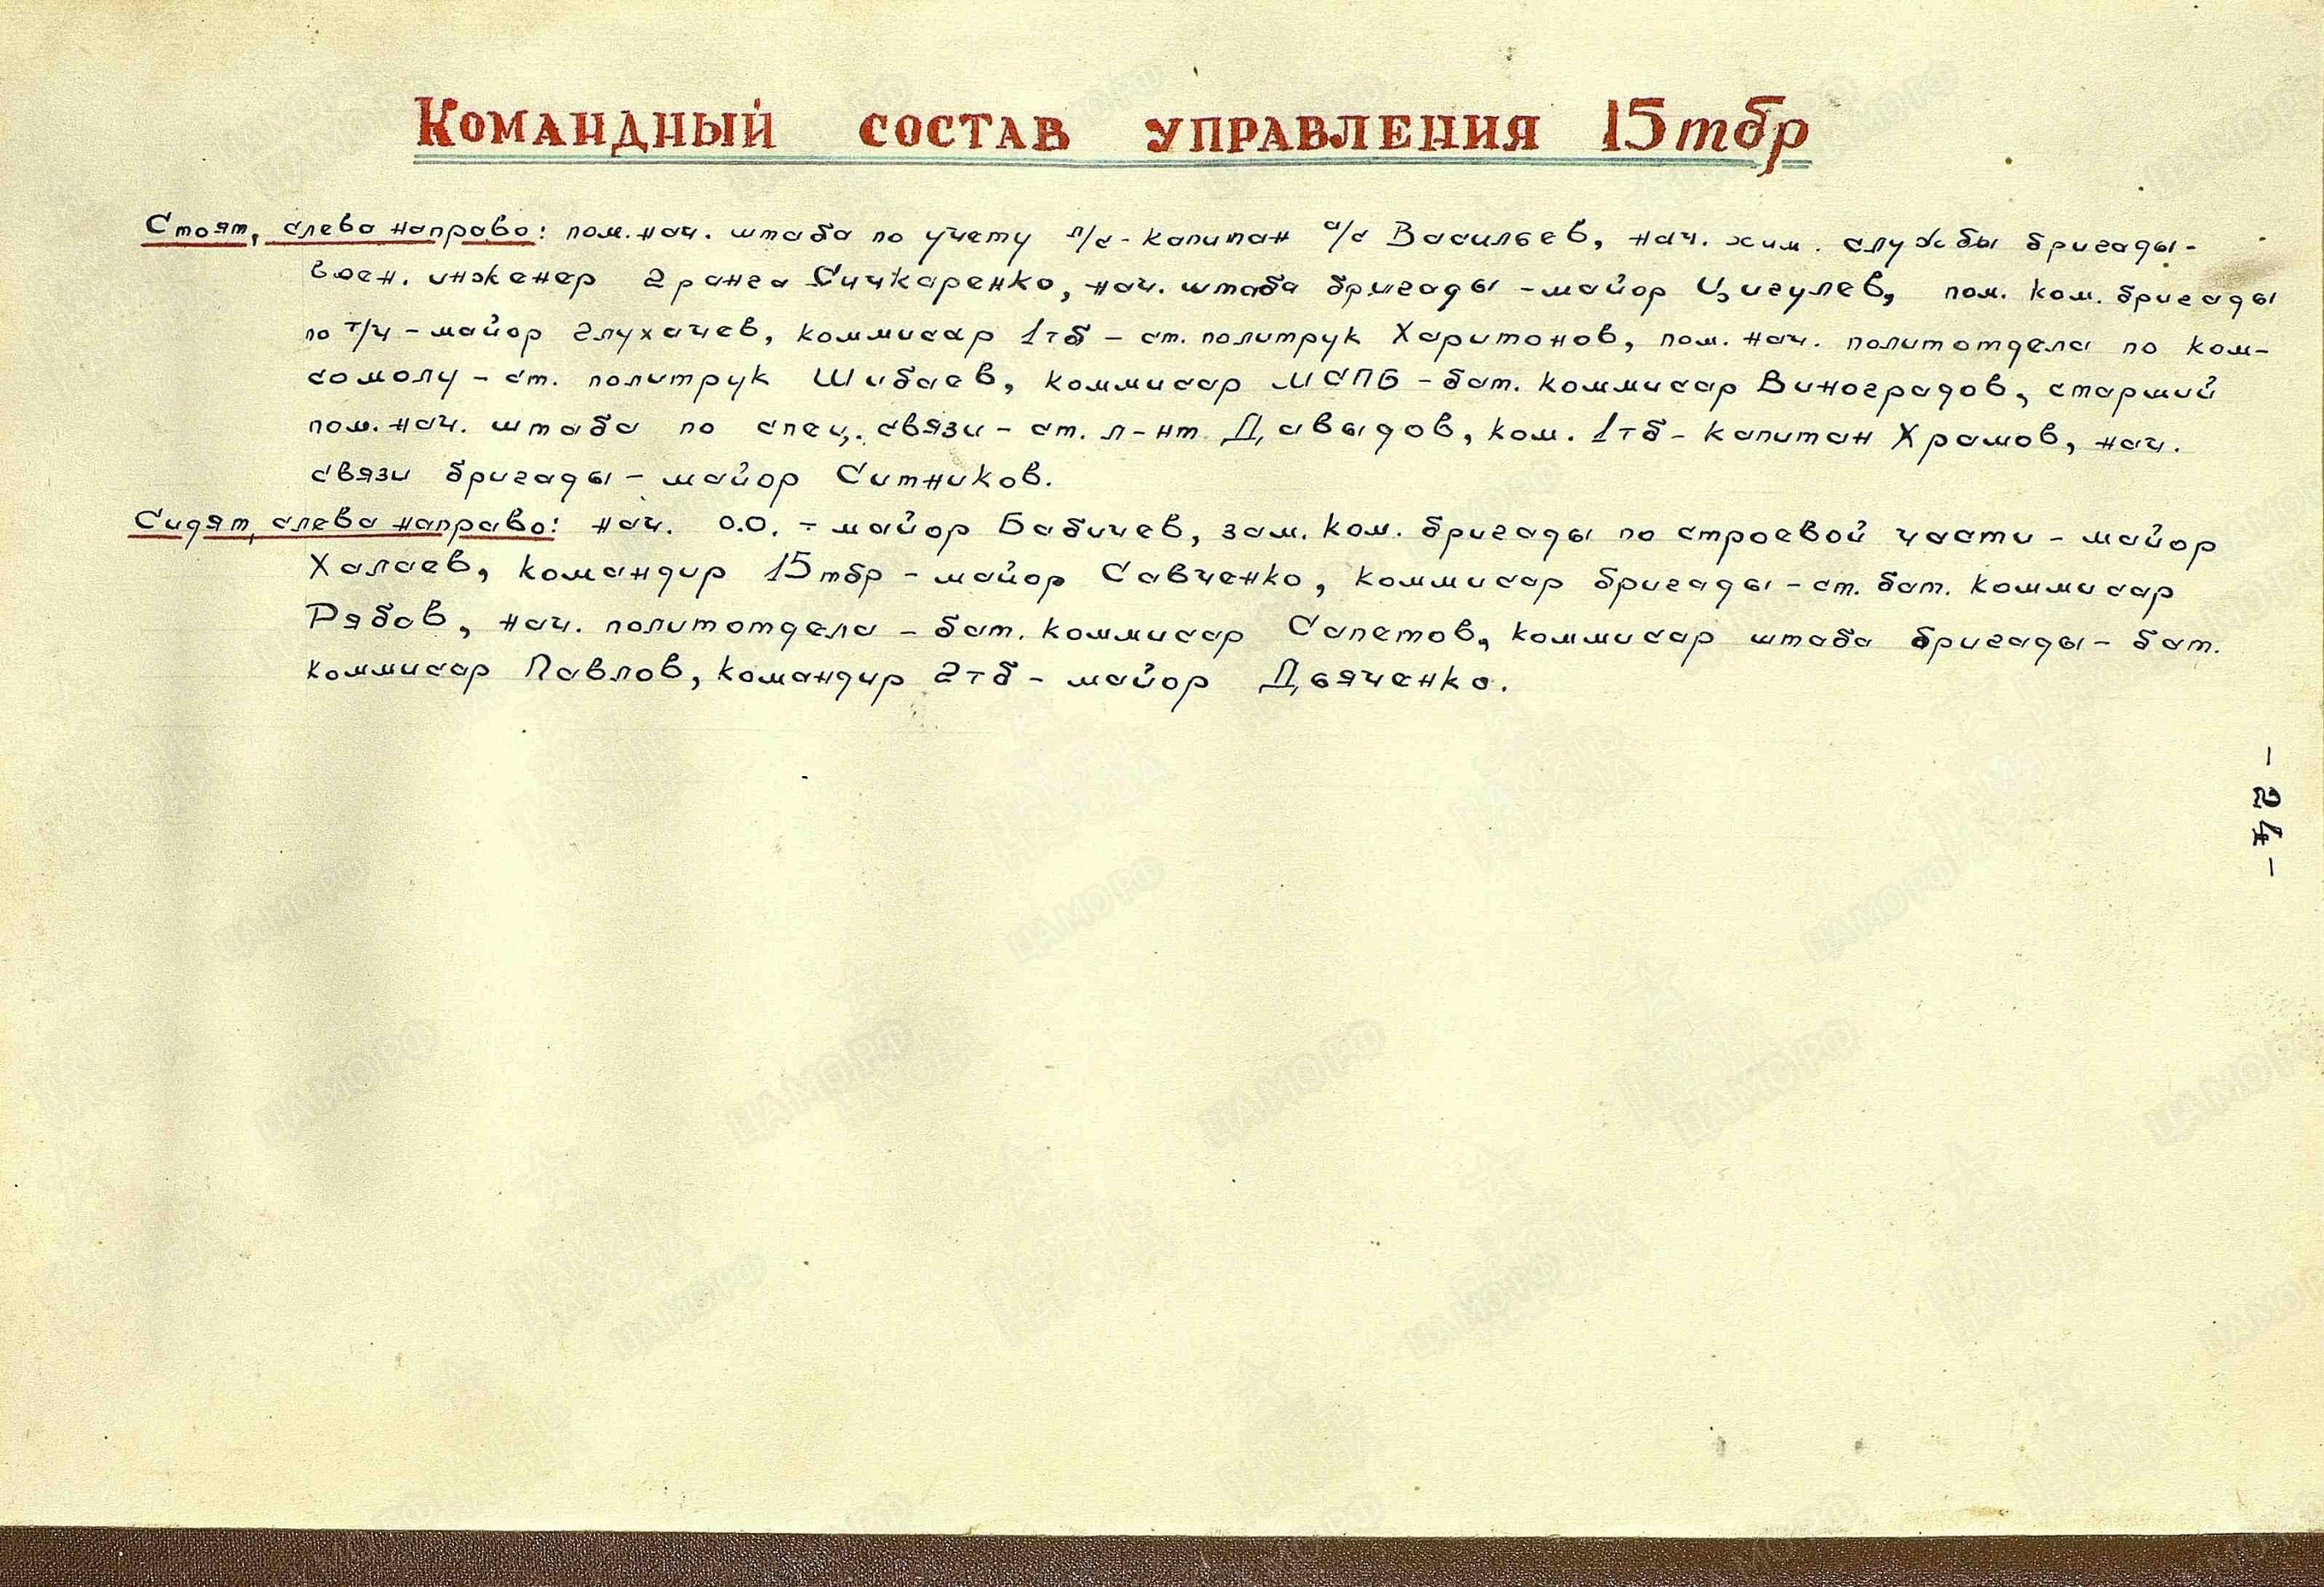 Командный состав управления 15тбр
Стоят, слева направо: пом. нач. штаба по учету л/с - капитан а/с Васильев, нач. хим. службы бригады-
воен. инженер 2 ранга Сичкаренко, нач. штаба бригады - майор Цигулев, пом. ком. бригады
по т/ч - майор Глухачев, коммисар 1тб - ст. политрук Харитонов, пом. нач. политотдела по ком-
сомолу - ст. политрук Шибаев, коммисар МСПБ - бат. коммисар Виноградов, старший
пом. нач. штаба по спец. связи - ст. л-нт Давыдов, ком. 1тб - капитан Храмов, нач.
связи бригады - майор Ситников.
Сидят, слева направо: нач. О.О. - майор Бабичев, зам. ком. бригады по строевой части - майор
Халаев, командир 15тбр - майор Савченко, коммисар бригады - ст. бат. коммисар
Рябов, нач. политотдела - бат. коммисар Сапетов, коммисар штаба бригады - бат.
коммисар Павлов, командир 2тб - майор Дьяченко.
- 24 -
ЦАМО РФ